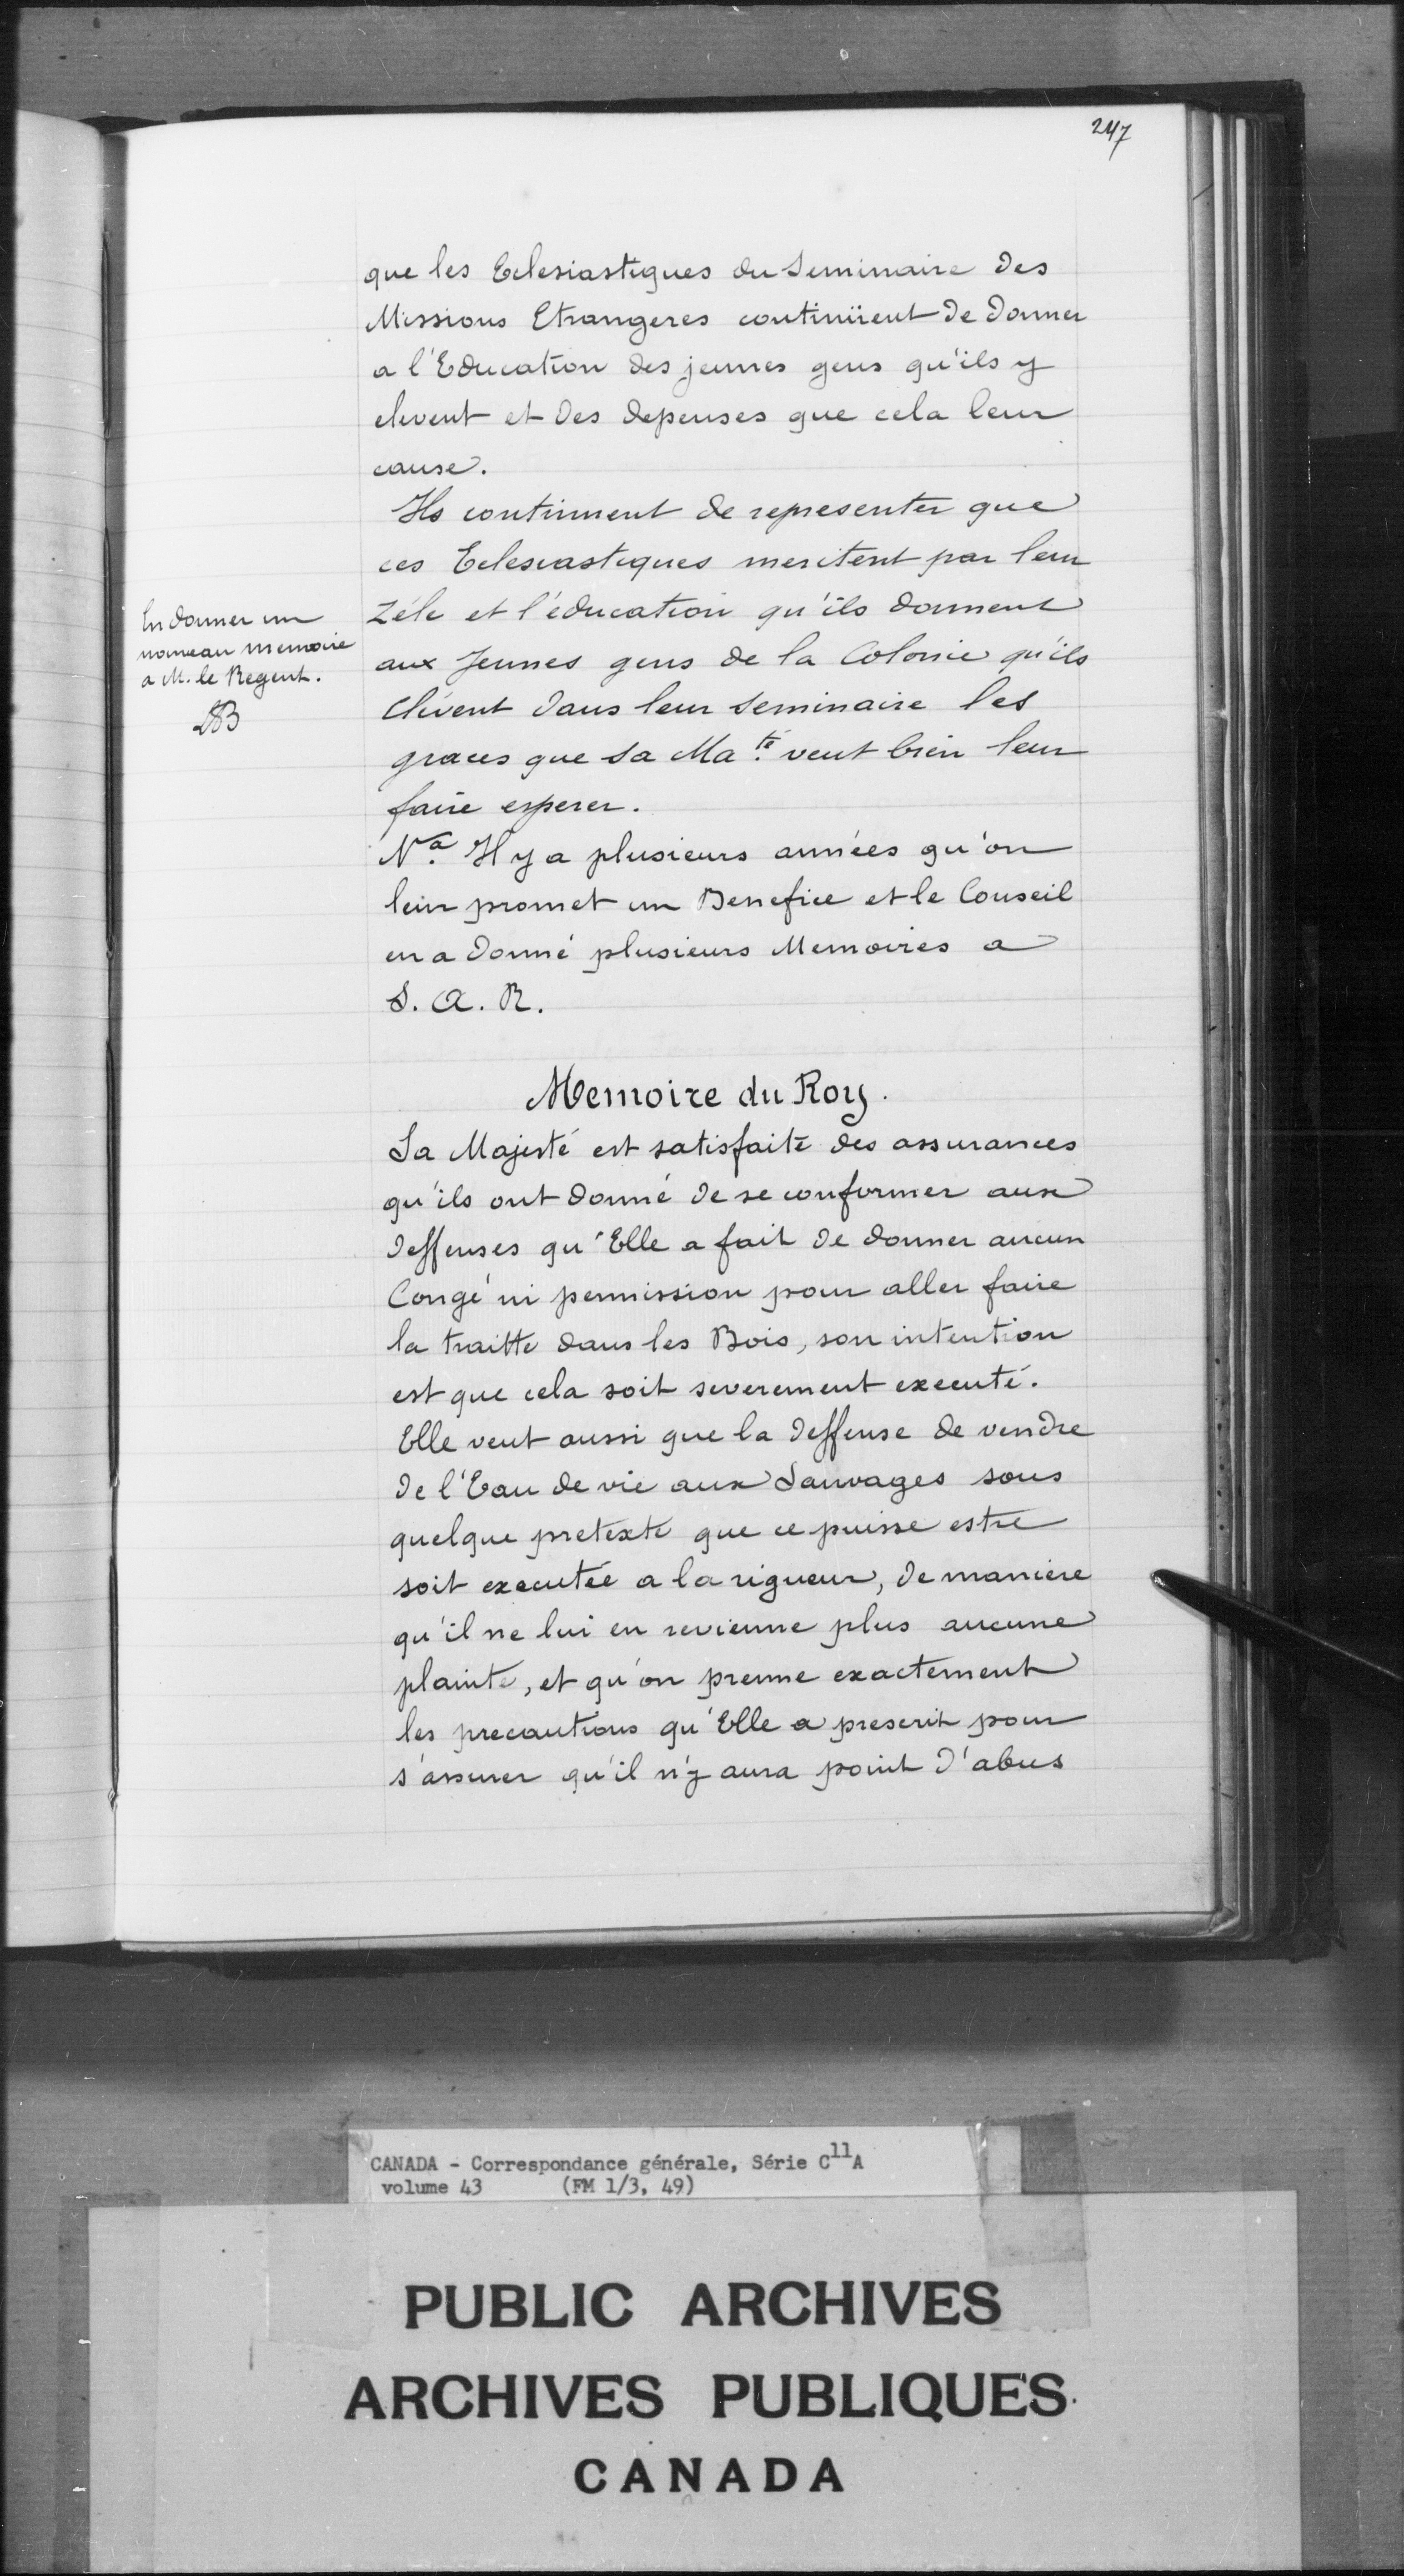 247
que les Eclesiastiques du Seminaire des
Missions Etrangeres continüent de donner
a l'Education des jeunes gens qu'ils y
elevent et des depenses que cela leur
cause.
Ils continuent de representer que
ces Eclesiastiques meritent par leur
Zéle et l'éducation qu'ils donnent
aux Jeunes gens de la Colonie qu'ils
elévent dans leur seminaire les
graces que sa Ma.té veut bien leur
faire esperer.
En donner un
nouveau memoire
a M. le Regent.
LAB
N.a Il y a plusieurs années qu'on
leur promet un Benefice et le Conseil
en a donné plusieurs Memoires a
S. A. R.
Memoire du Roy.
Sa Majesté est satisfaite des assurances
qu'ils ont donné de se conformer aux
deffenses qu'Elle a fait de donner aucun
Congé ni permission pour aller faire
la traitte dans les Bois, son intention
est que cela soit severement executé.
Elle veut aussi que la deffense de vendre
de l'Eau de vie aux Sauvages sous
quelque pretexte que ce puisse estre
soit executée a la rigueur, de maniere
qu'il ne lui en revienne plus aucune
plainte, et qu'on prenne exactement
les precautions qu'Elle a prescrit pour
s'assurer qu'il n'y aura point d'abus
CANADA - Correspondance générale, Série C11A
volume 43 (FM 1/3, 49)
PUBLIC ARCHIVES
ARCHIVES PUBLIQUES
CANADA